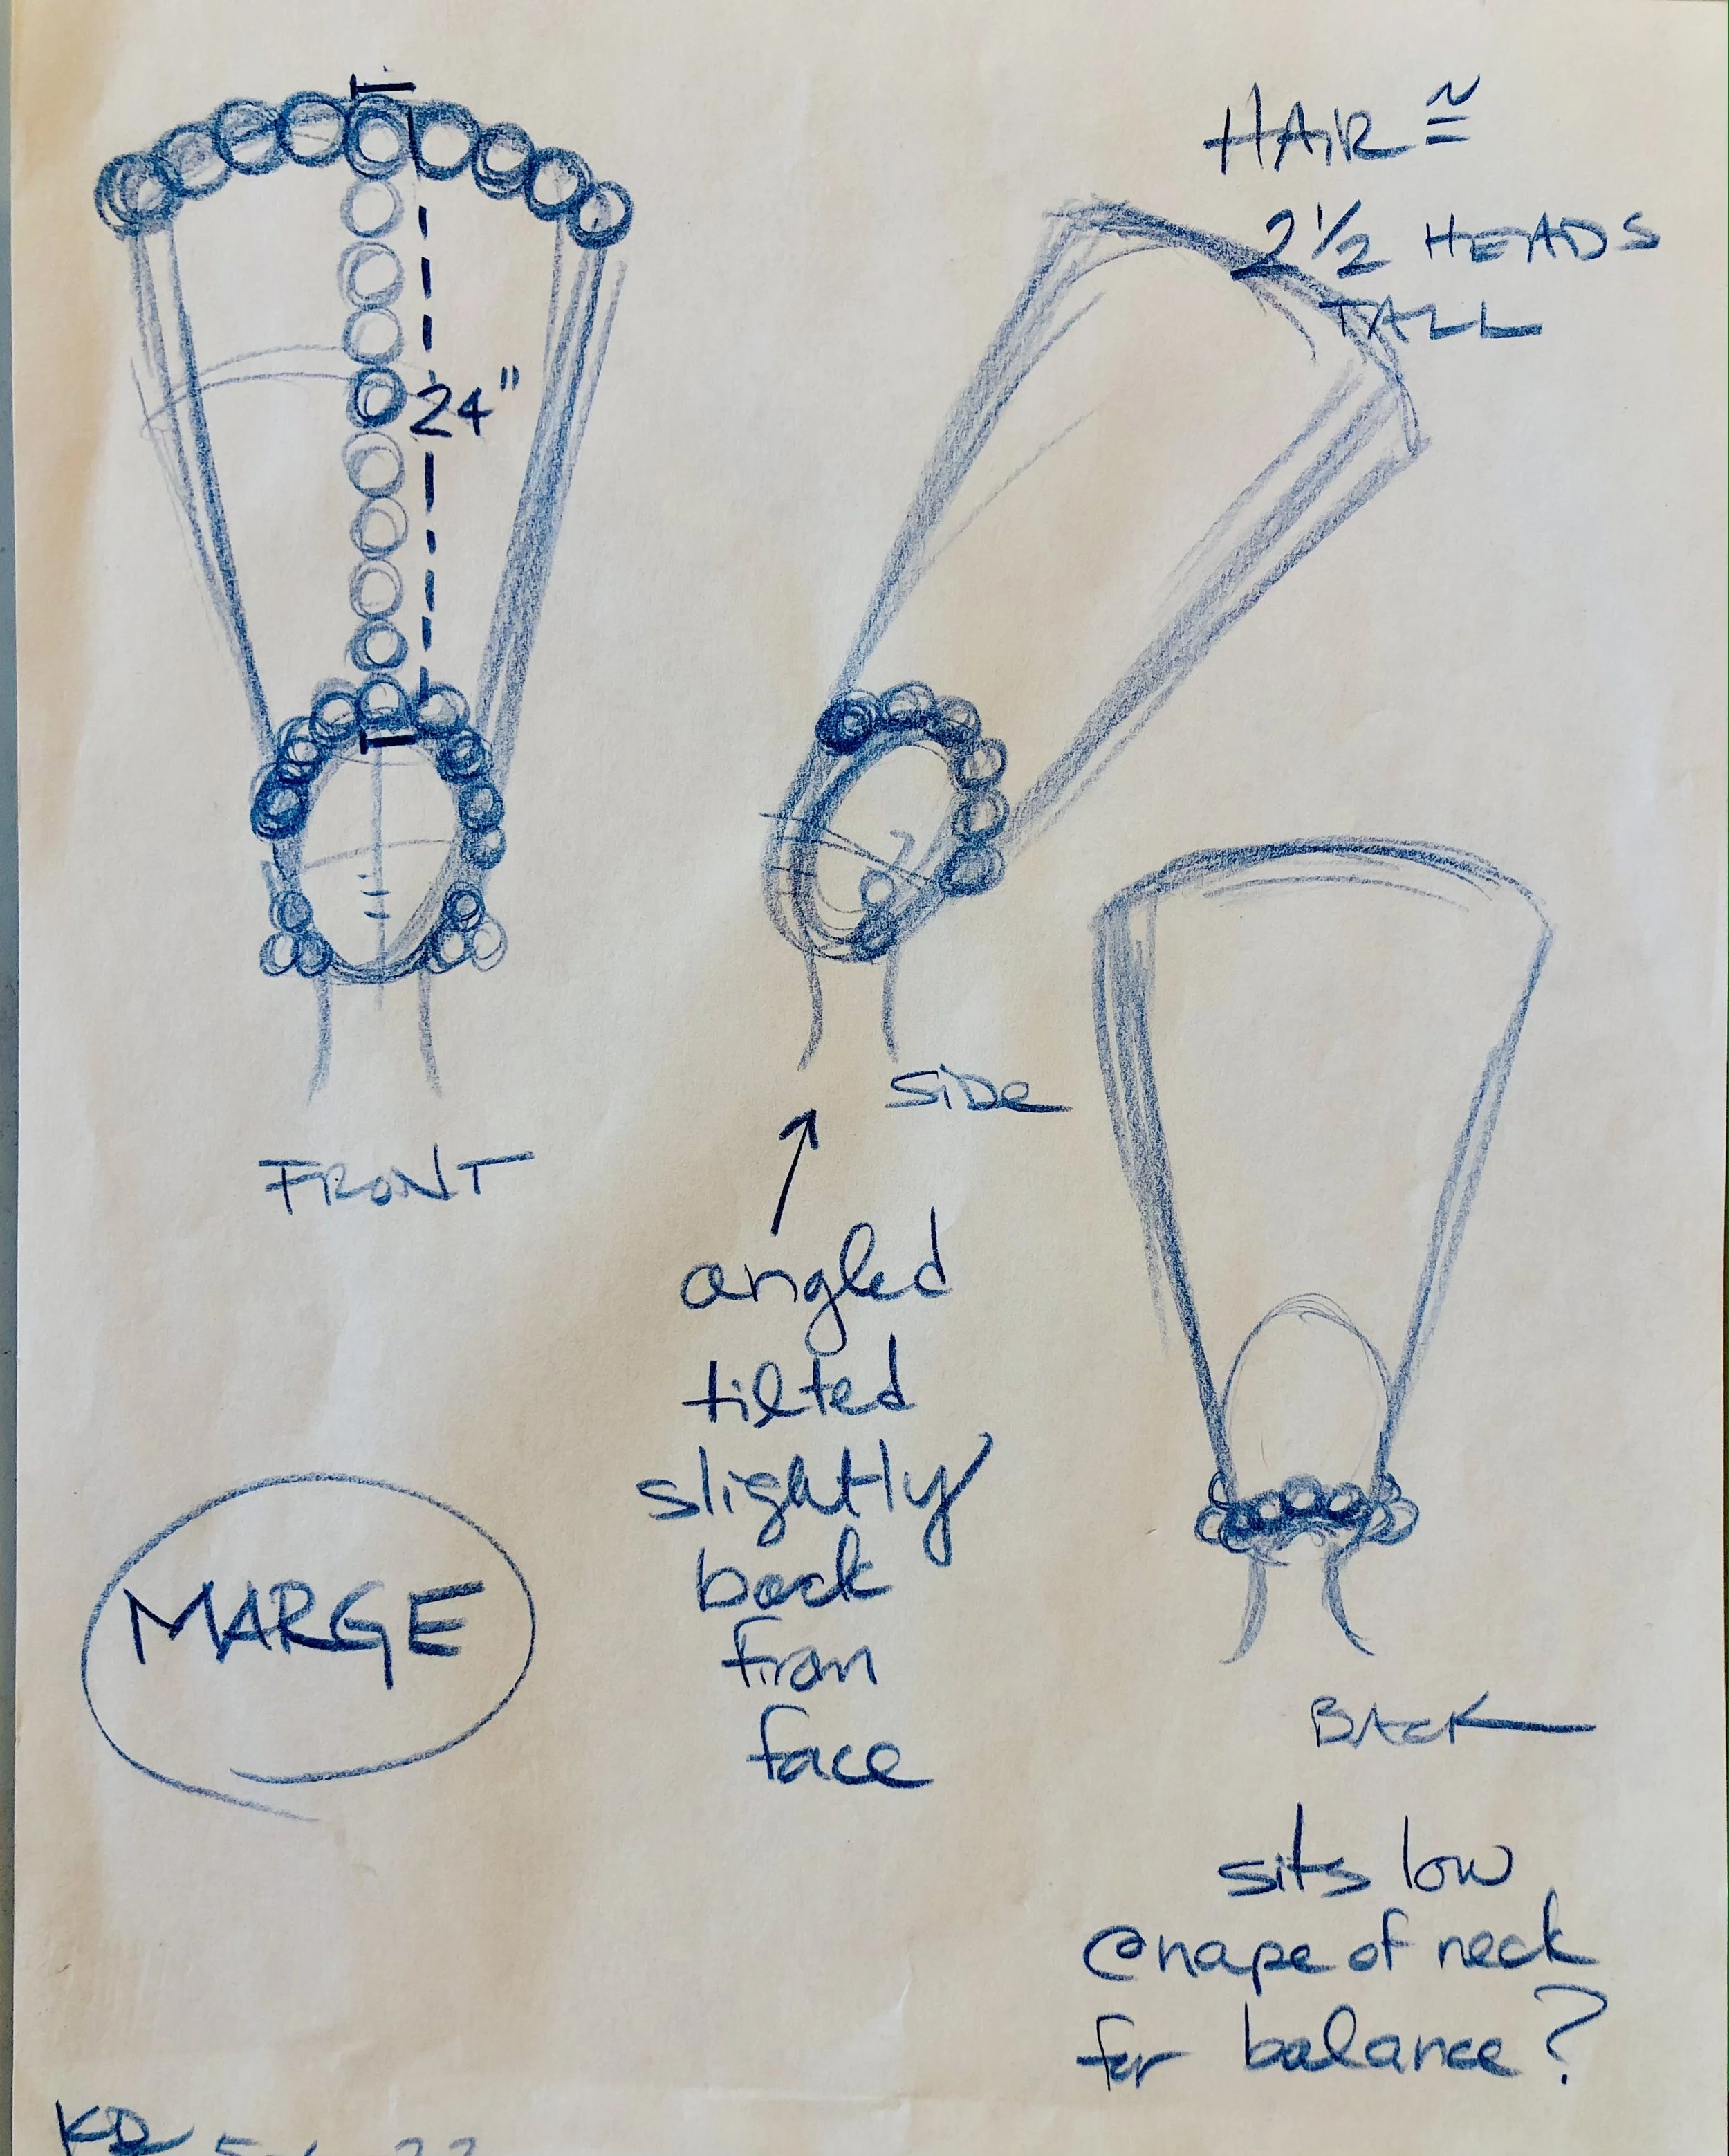 HAIR ≅
2½ HEADS
TALL
24"
SIDE
FRONT
angled
tilted
slightly
back
from
face
MARGE
BACK
sits low
@ nape of neck
for balance?
KD